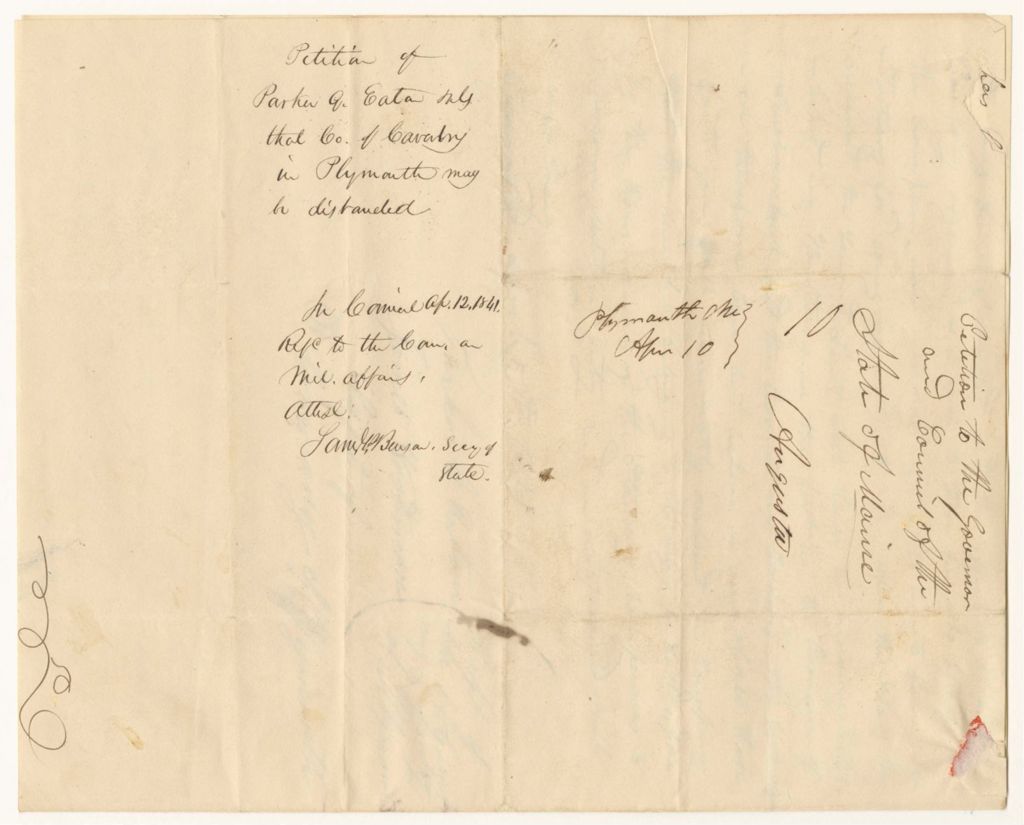 Petition of
Parker G. Eaton & als
that Co. of Cavalry
in Plymouth may
be disbanded
In Council Ap. 12, 1841.
Refd to the Com. on
Mil. affairs.
Attest:
Saml P. Benson. Secy of
State.
Plymouth Me
Apr 10
10
Petition to the Governor
and Council of the
State of Maine
Augusta